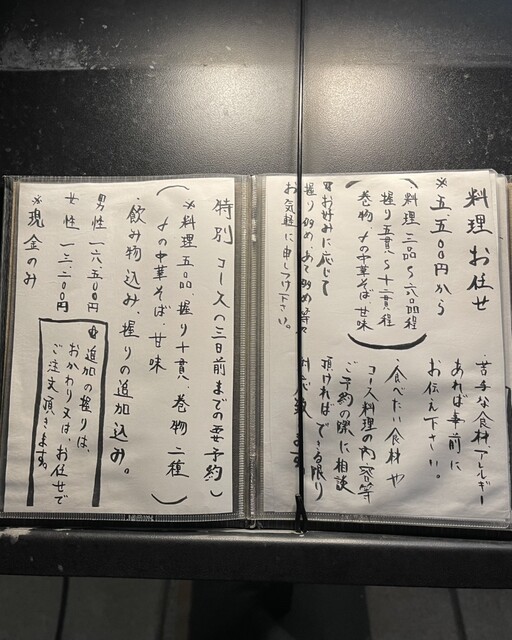 料理お任せ
※五.五〇〇円から
・料理二品〜六品程
握り五貫〜十二貫程
巻物〆の中華そば.甘味
お好みに応じて
握り多め、あて多め等々
お気軽に申しつけ下さい。
苦手な食材、アレルギー
あれば事前に
お伝え下さい。
・食べたい食材や
コース料理の内容等
ご予約の際に相談
頂ければできる限り
対応致します
特別コース(三日前までの要予約)
※料理五品.握り十貫、巻物一種
〆の中華そば、甘味
・飲み物込み、握りの追加込み。
男性一六.五〇〇円
女性一三.二〇〇円
※現金のみ
追加の握りは、
おかわり又は、お任せで
ご注文頂きます。